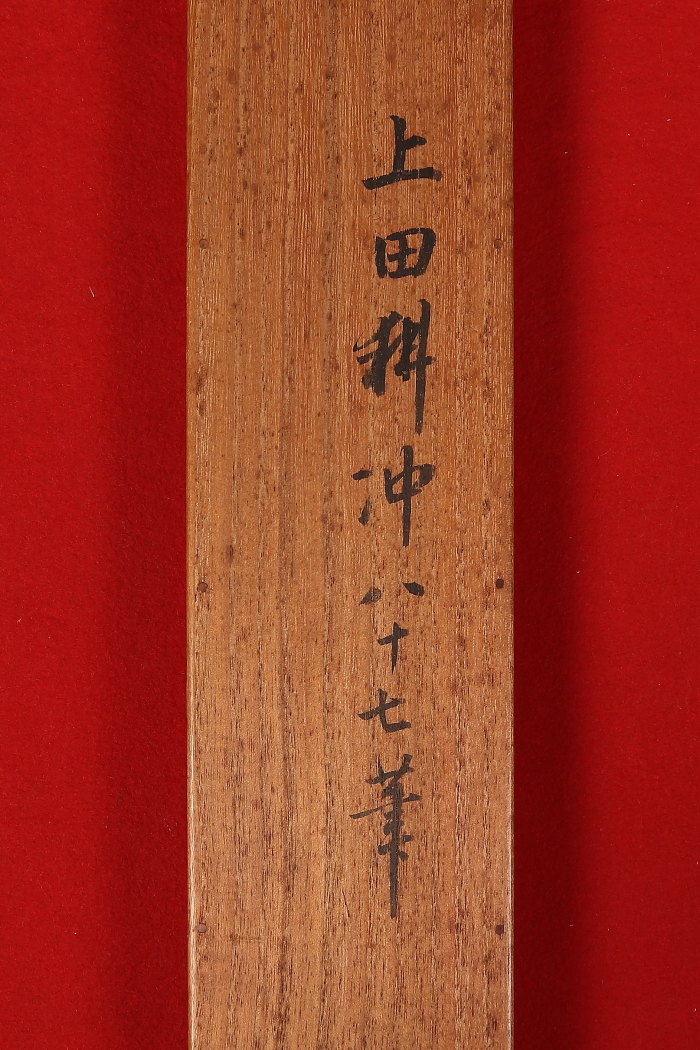 上田耕冲八十七筆